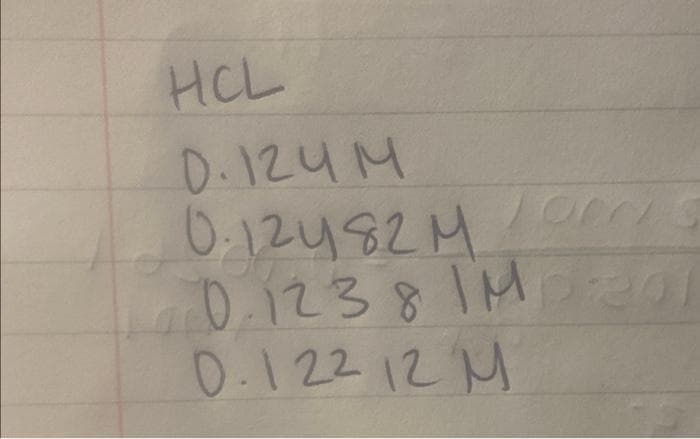 HCL
0.124M
0.12482M
0.12381M
0.12212M